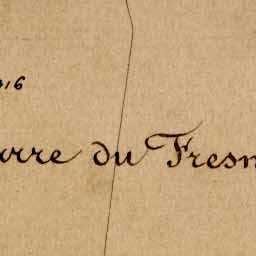 16
rre du Fresn